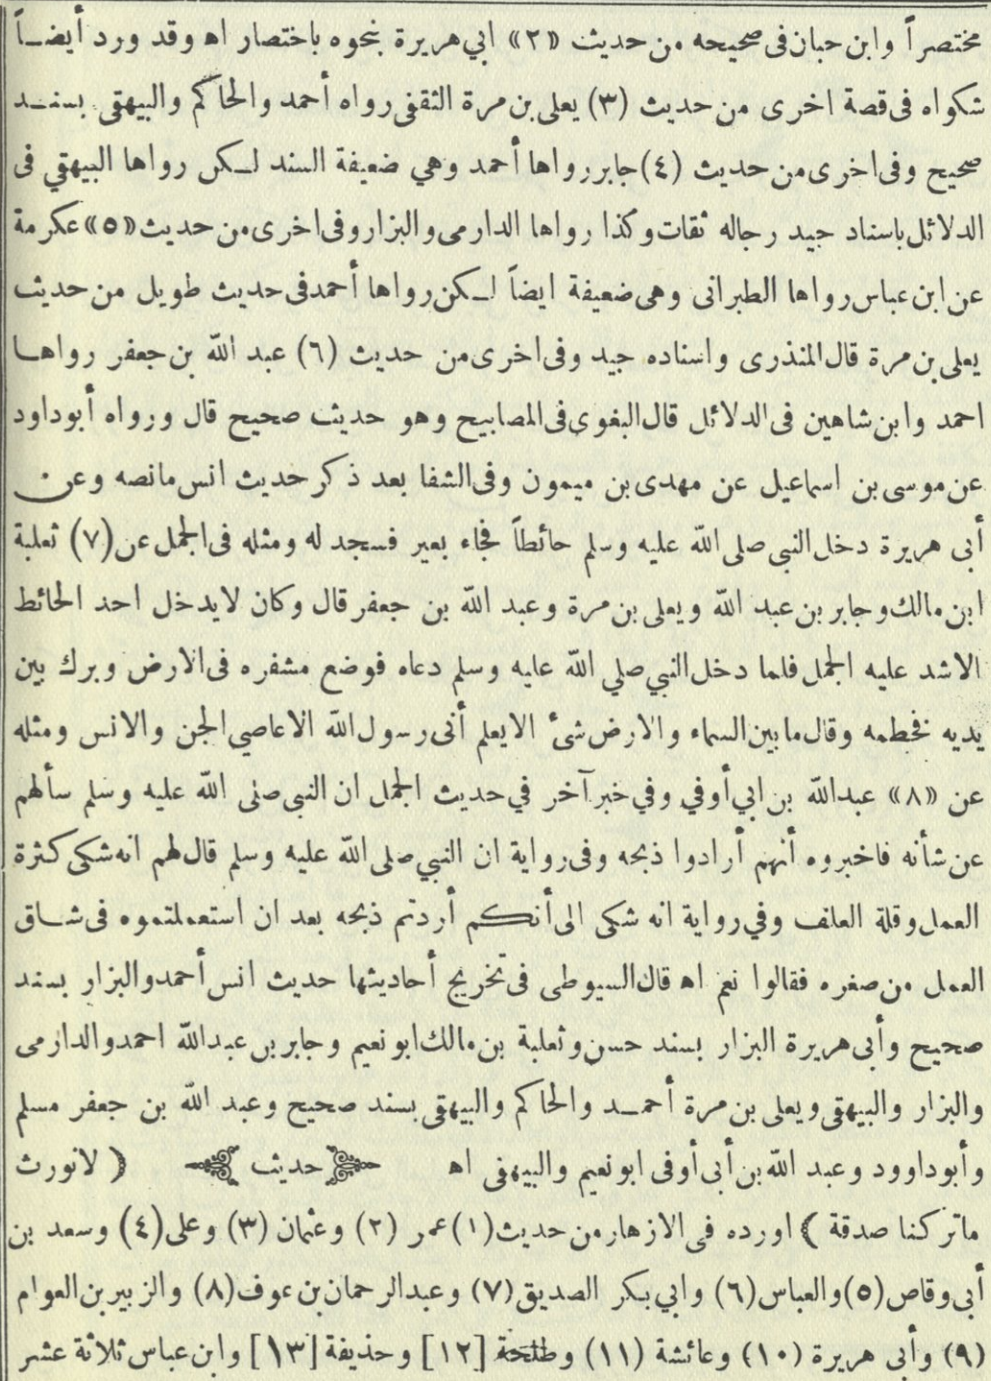 مختصراً وابن حبان فى صحيحه من حديث «٢» ابي هريرة بنحوه باختصار اه وقد ورد أيضـاً
شكواه فى قصة اخرى من حديث (٣) يعلى بن مرة الثقفى رواه أحمد والحاكم والبيهقى بسنـد
صحيح وفى اخرى من حديث (٤) جابر رواها أحمد وهي ضعيفة السند لـكن رواها البيهقي فى
الدلائل باسناد جيد رجاله ثقات وكذا رواها الدارمى والبزار وفى اخرى من حديث «٥» عكرمة
عن ابن عباس رواها الطبرانى وهى ضعيفة ايضاً لـكن رواها أحمد فى حديث طويل من حديث
يعلى بن مرة قال المنذرى واسناده جيد وفى اخرى من حديث (٦) عبد الله بن جعفر رواهـا
احمد وابن شاهين فى الدلائل قال البغوي فى المصابيح وهو حديث صحيح قال ورواه أبوداود
عن موسى بن اسماعيل عن مهدى بن ميمون وفى الشفا بعد ذكر حديث انس مانصه وعن
أبى هريرة دخل النبى صلى الله عليه وسلم حائطاً فجاء بعير فسجد له ومثله فى الجمل عن (٧) ثعلبة
ابن مالك وجابر بن عبد الله ويعلى بن مرة وعبد الله بن جعفر قال وكان لايدخل احد الحائط
الاشد عليه الجمل فلما دخل النبي صلي الله عليه وسلم دعاه فوضع مشفره فى الارض وبرك بين
يديه فخطمه وقال مابين السماء والارض شئ الايعلم أنى رسول الله الاعاصي الجن والانس ومثله
عن «٨» عبدالله بن ابي أوفي وفي خبر آخر في حديث الجمل ان النبى صلى الله عليه وسلم سألهم
عن شأنه فاخبروه أنهم أرادوا ذبحه وفى رواية ان النبي صلى الله عليه وسلم قال لهم انه شكى كثرة
العمل وقلة العلف وفي رواية انه شكى الى أنكم أردتم ذبحه بعد ان استعملتموه فى شـاق
العمل من صغره فقالوا نعم اه قال السيوطى فى تخريج أحاديثها حديث انس أحمد والبزار بسند
صحيح وأبى هريرة البزار بسند حسن وثعلبة بن مالك ابو نعيم وجابر بن عبدالله احمد والدارمى
والبزار والبيهقى ويعلى بن مرة أحمـد والحاكم والبيهقى بسند صحيح وعبد الله بن جعفر مسلم
وأبوداوود وعبد الله بن أبى أوفى ابونعيم والبيهقى اه حديث ( لانورث
ماتركنا صدقة ) اورده فى الازهار من حديث (١) عمر (٢) وعثمان (٣) وعلى (٤) وسعد بن
أبى وقاص (٥) والعباس (٦) وابي بكر الصديق (٧) وعبدالرحمان بن عوف (٨) والزبير بن العوام
(٩) وأبى هريرة (١٠) وعائشة (١١) وطلحة [١٢] وحذيفة [١٣] وابن عباس ثلاثة عشر